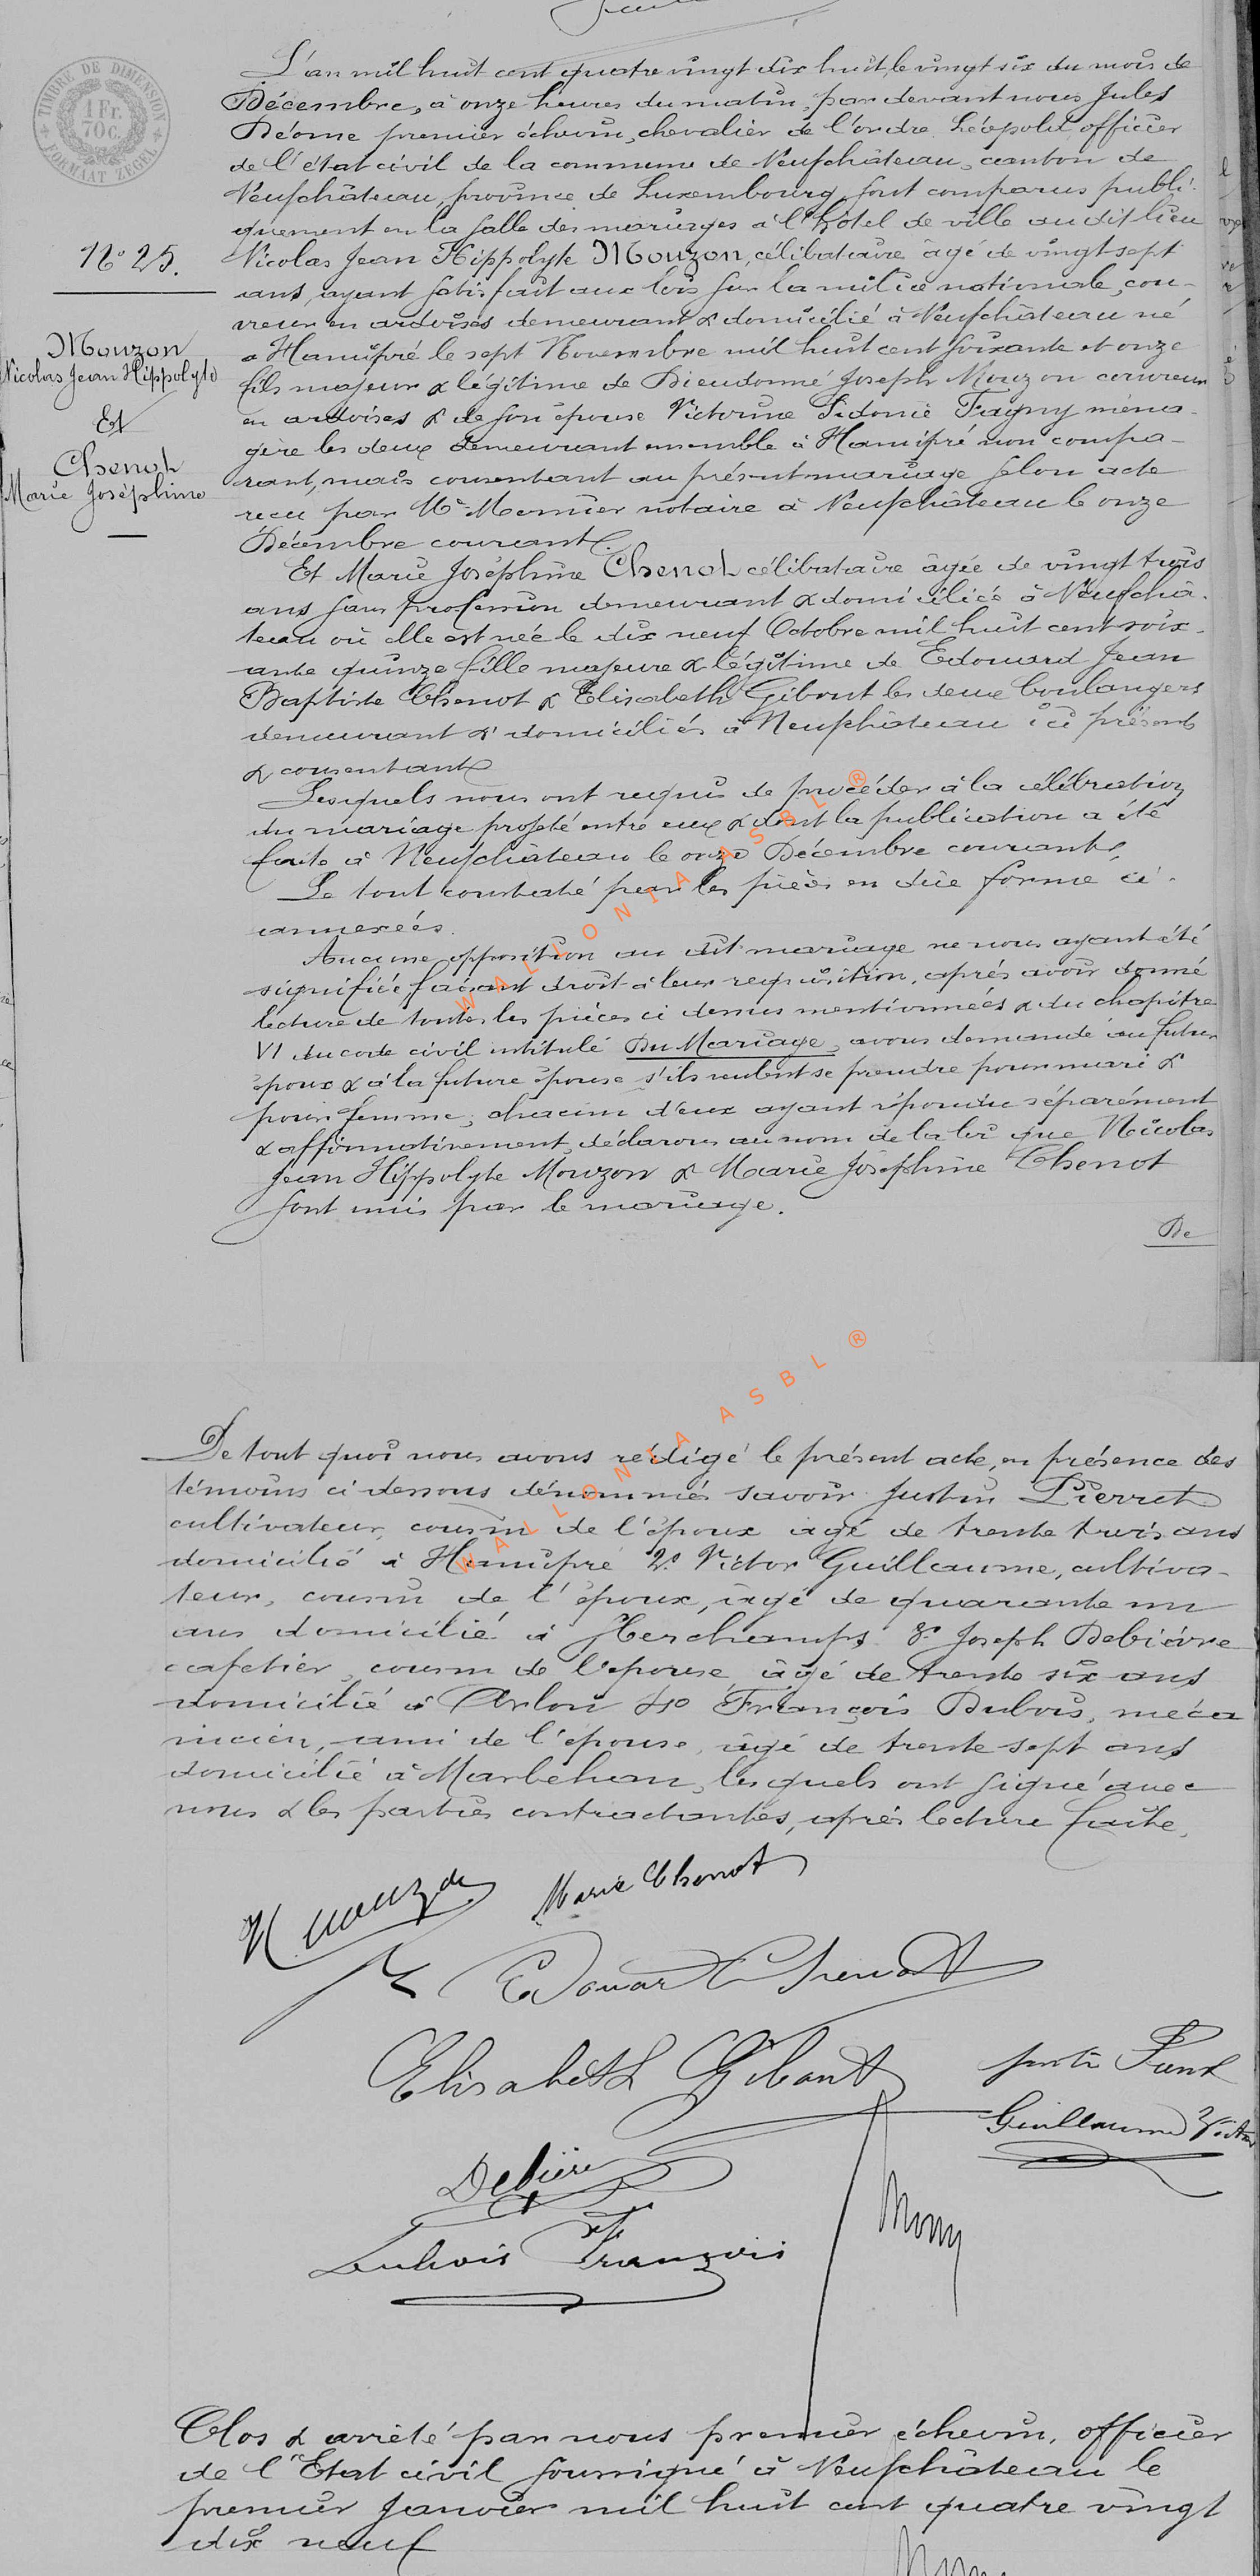 TIMBRE DE DIMENSION
1 Fr. 70 C.
FORMAAT ZEGEL
L'an mil huit cent quatre vingt dix huit, le vingt six du mois de
Décembre, à onze heures du matin, par devant nous Jules
Déome premier échevin, chevalier de l'ordre Léopold, officier
de l'état civil de la commune de Neufchâteau, canton de
Neufchâteau, province de Luxembourg, sont comparus publi-
quement en la salle des mariages à l'hôtel de ville audit lieu
N° 25.
Nicolas Jean Hippolyte Mouzon, célibataire âgé de vingt sept
ans, ayant satisfait aux lois sur la milice nationale, cou-
vreur en ardoises demeurant & domicilié à Neufchâteau né
à Hamipré le sept Novembre mil huit cent soixante et onze
fils majeur & légitime de Dieudonné Joseph Mouzon couvreur
en ardoises & de son épouse Victorine Sidonie Fagny ména-
gère les deux demeurant ensemble à Hamipré non compa-
rant, mais consentant au présent mariage selon acte
reçu par Me Monnier notaire à Neufchâteau le onze
Décembre courant.
Mouzon
Nicolas Jean Hippolyte
Et
Chenot
Marie Joséphine
Et Marie Joséphine Chenot célibataire âgée de vingt trois
ans sans profession demeurant & domiciliée à Neufchâ-
teau où elle est née le dix neuf Octobre mil huit cent soix-
ante quinze fille majeure & légitime de Edouard Jean
Baptiste Chenot & Elisabeth Gibout les deux boulangers
demeurant & domiciliés à Neufchâteau ici présents
& consentant
Lesquels nous ont requis de procéder à la célébration
du mariage projeté entre eux & dont la publication a été
faite à Neufchâteau le onze Décembre courant.
Le tout constaté par les pièces en due forme ci-
annexées.
Aucune opposition au dit mariage ne nous ayant été
signifiée, faisant droit à leur requisition, après avoir donné
lecture de toutes les pièces ci dessus mentionnées & du chapitre
VI du code civil intitulé Du Mariage, avons demandé au futur
époux & à la future épouse s'ils veulent se prendre pour mari &
pour femme, chacun d'eux ayant répondu séparément
& affirmativement, déclarons au nom de la loi que Nicolas
Jean Hippolyte Mouzon & Marie Joséphine Chenot
sont unis par le mariage.
De
WALLONIA ASBL ®
De tout quoi nous avons rédigé le présent acte, en présence des
témoins ci dessous dénommés savoir Justin Pierret
cultivateur, cousin de l'époux âgé de trente trois ans
domicilié à Hamipré 2° Victor Guillaume, cultiva-
teur, cousin de l'époux, âgé de quarante un
ans domicilié à Herchamps 3° Joseph Debièvre
cafetier, cousin de l'épouse, âgé de trente six ans
domicilié à Arlon 4° François Dubois, méca
nicien, ami de l'épouse, âgé de trente sept ans
domicilié à Marbehan, lesquels ont signé avec
nous & les parties contractantes, après lecture faite.
WALLONIA ASBL ®
N Mouzon Marie Chenot
Edouard Chenot
Elisabeth Gibout
Guillaume Victor
Debièvre
Dubois François
Clos & arrêté par nous premier échevin, officier
de l'Etat civil soussigné à Neufchâteau le
premier Janvier mil huit cent quatre vingt
dix neuf